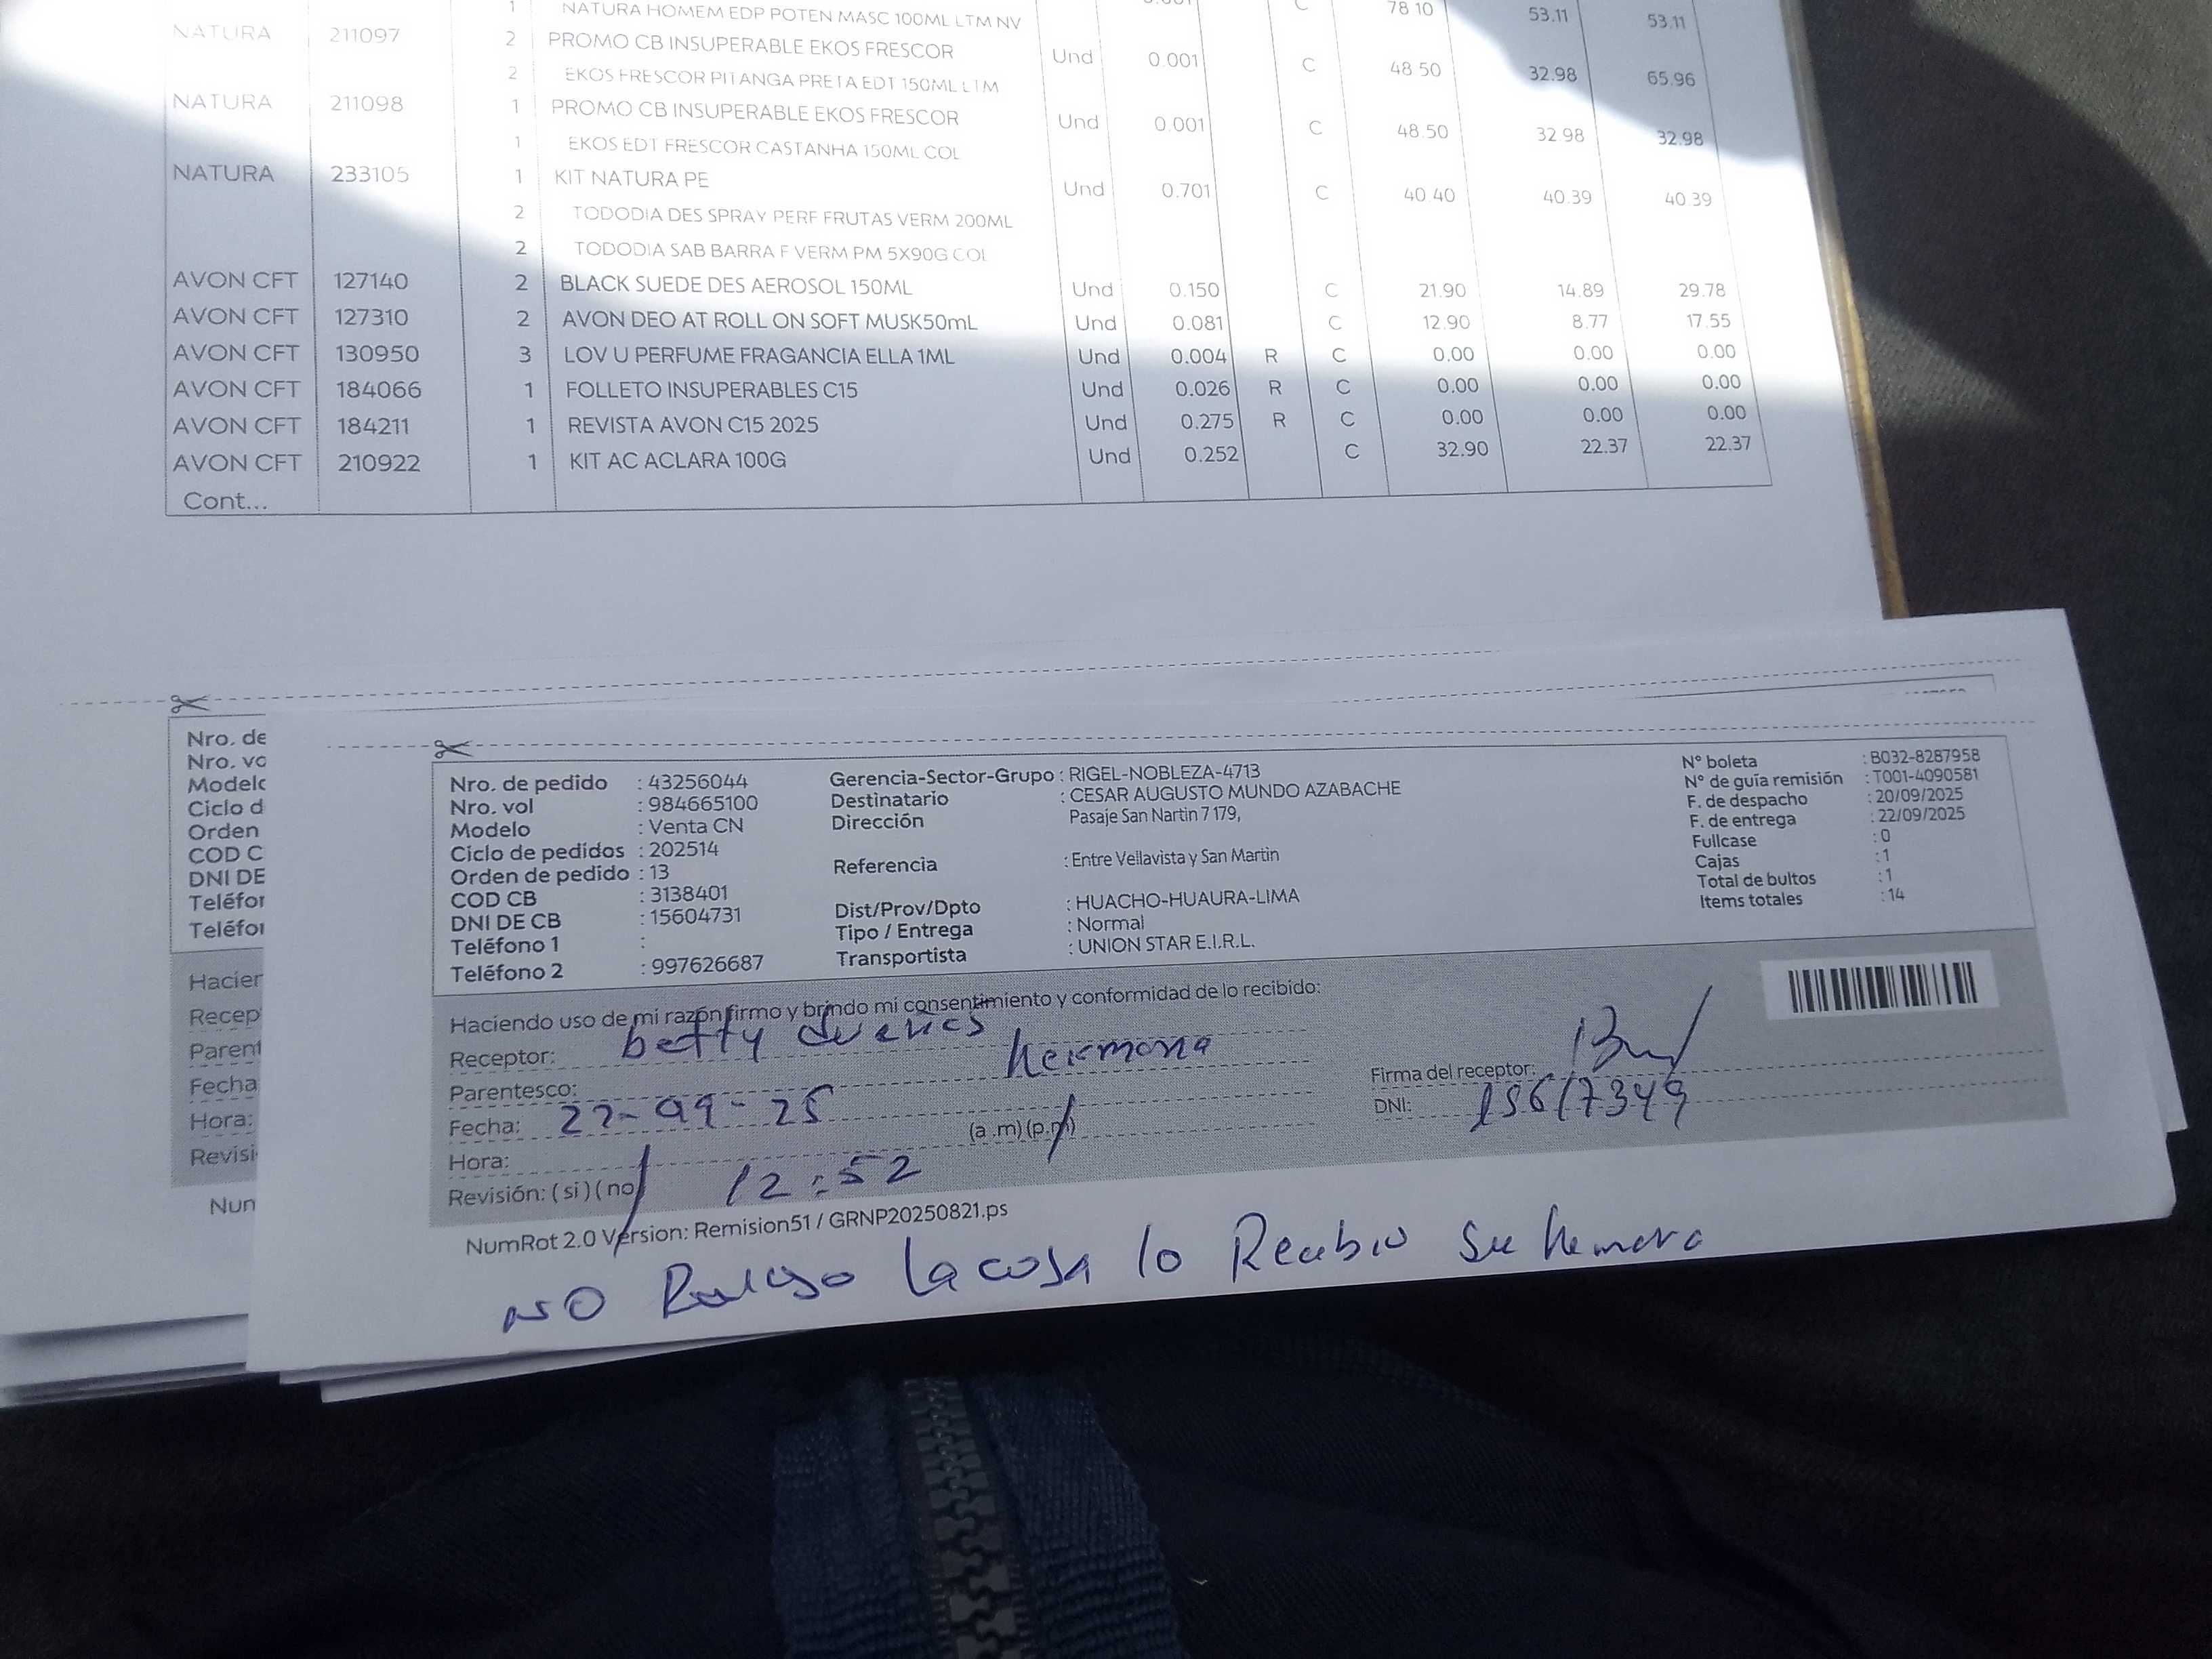 1 NATURA HOMEM EDP POTEN MASC 100ML LTM NV C 78.10 53.11 53.11
NATURA 211097 2 PROMO CB INSUPERABLE EKOS FRESCOR Und 0.001 C 48.50 32.98 65.96
2 EKOS FRESCOR PITANGA PRETA EDT 150ML LTM
NATURA 211098 1 PROMO CB INSUPERABLE EKOS FRESCOR Und 0.001 C 48.50 32.98 32.98
1 EKOS EDT FRESCOR CASTANHA 150ML COL
NATURA 233105 1 KIT NATURA PE Und 0.701 C 40.40 40.39 40.39
2 TODODIA DES SPRAY PERF FRUTAS VERM 200ML
2 TODODIA SAB BARRA F VERM PM 5X90G COL
AVON CFT 127140 2 BLACK SUEDE DES AEROSOL 150ML Und 0.150 C 21.90 14.89 29.78
AVON CFT 127310 2 AVON DEO AT ROLL ON SOFT MUSK50mL Und 0.081 C 12.90 8.77 17.55
AVON CFT 130950 3 LOV U PERFUME FRAGANCIA ELLA 1ML Und 0.004 R C 0.00 0.00 0.00
AVON CFT 184066 1 FOLLETO INSUPERABLES C15 Und 0.026 R C 0.00 0.00 0.00
AVON CFT 184211 1 REVISTA AVON C15 2025 Und 0.275 R C 0.00 0.00 0.00
AVON CFT 210922 1 KIT AC ACLARA 100G Und 0.252 C 32.90 22.37 22.37
Cont...
Nro. de
Nro. vo
Modelo
Ciclo d
Orden
COD C
DNI DE
Teléfor
Teléfor
Hacier
Recep
Parent
Fecha
Hora:
Revisi
Num
Nro. de pedido : 43256044
Nro. vol : 984665100
Modelo : Venta CN
Ciclo de pedidos : 202514
Orden de pedido : 13
COD CB : 3138401
DNI DE CB : 15604731
Teléfono 1 :
Teléfono 2 : 997626687
Gerencia-Sector-Grupo : RIGEL-NOBLEZA-4713
Destinatario : CESAR AUGUSTO MUNDO AZABACHE
Dirección Pasaje San Nartin 7 179,
Referencia : Entre Vellavista y San Martin
Dist/Prov/Dpto : HUACHO-HUAURA-LIMA
Tipo / Entrega : Normal
Transportista : UNION STAR E.I.R.L.
N° boleta : B032-8287958
N° de guía remisión : T001-4090581
F. de despacho : 20/09/2025
F. de entrega : 22/09/2025
Fullcase : 0
Cajas : 1
Total de bultos : 1
Items totales : 14
Haciendo uso de mi razón firmo y brindo mi consentimiento y conformidad de lo recibido:
Receptor: betty
Parentesco: hermana
Fecha: 22-09-25
Hora: 12:52 (a .m) (p.m)
Revisión: ( si ) ( no
Firma del receptor:
DNI: 15617349
NumRot 2.0 Version: Remision51 / GRNP20250821.ps
NO La cosa lo Recibio su hermara